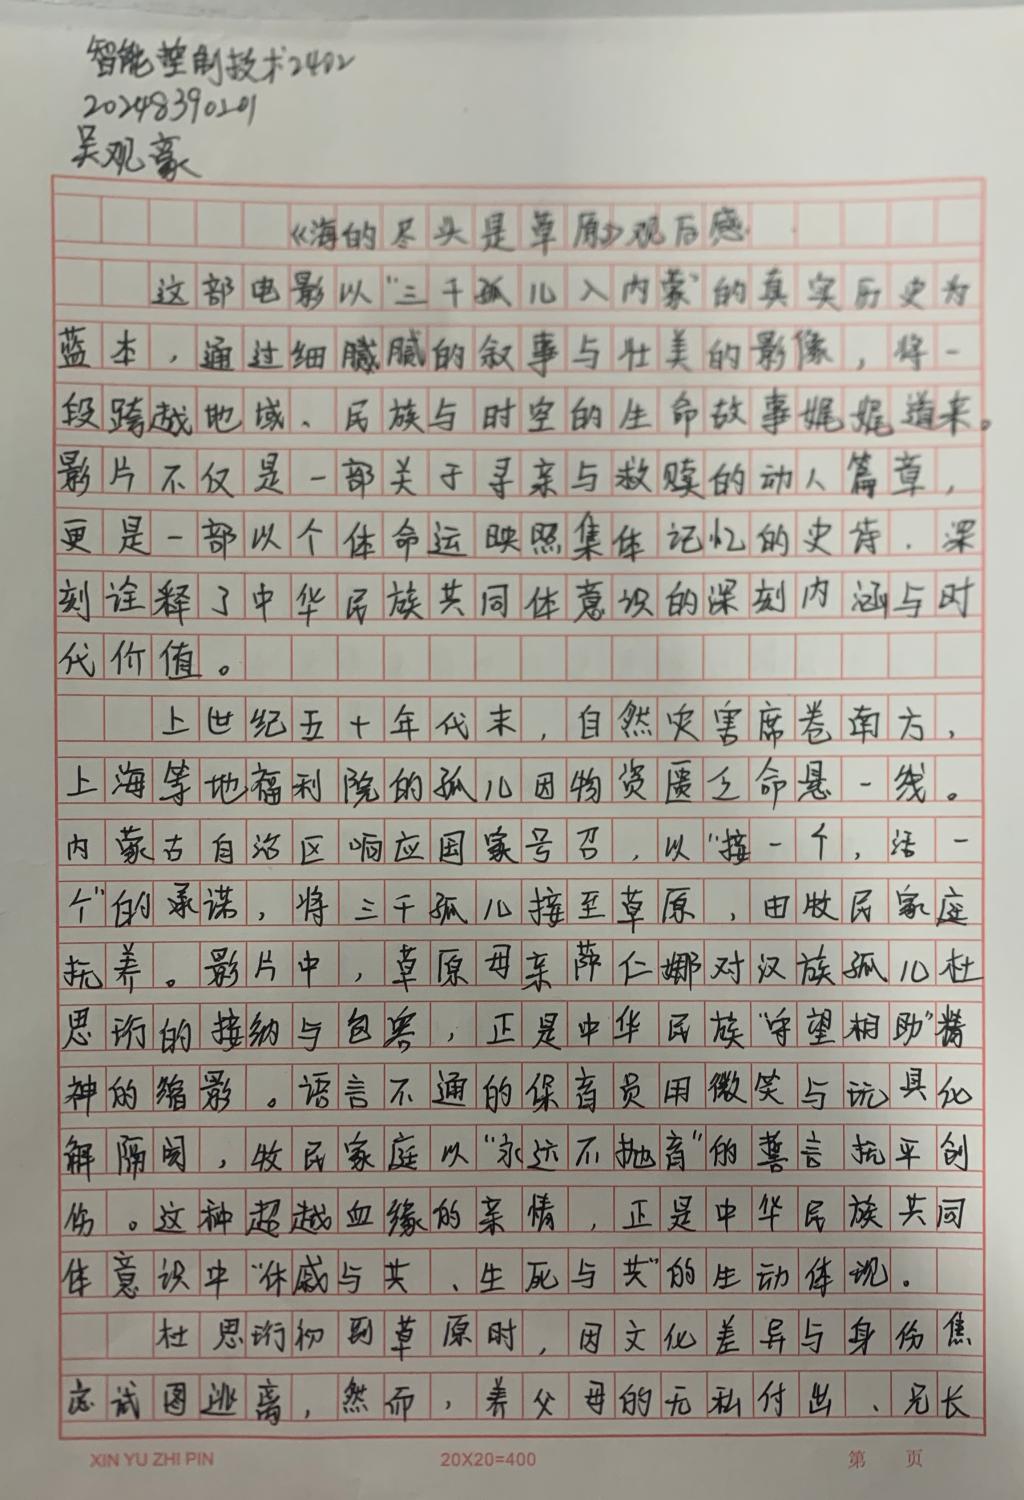 智能控制技术2402
20248390201
吴观豪
《海的尽头是草原》观后感
这部电影以"三千孤儿入内蒙"的真实历史为
蓝本，通过细腻腻的叙事与壮美的影像，将一
段跨越地域、民族与时空的生命故事娓娓道来。
影片不仅是一部关于寻亲与救赎的动人篇章，
更是一部以个体命运映照集体记忆的史诗．深
刻诠释了中华民族共同体意识的深刻内涵与时
代价值。
上世纪五十年代末，自然灾害席卷南方，
上海等地福利院的孤儿因物资匮乏命悬一线。
内蒙古自治区响应国家号召，以"接一个，活一
个"的承诺，将三千孤儿接至草原，由牧民家庭
抚养。影片中，草原母亲萨仁娜对汉族孤儿杜
思珩的接纳与包容，正是中华民族"守望相助"精
神的缩影。语言不通的保育员用微笑与玩具化
解隔阂，牧民家庭以"永远不抛弃"的誓言抚平创
伤。这种超越血缘的亲情，正是中华民族共同
体意识中"休戚与共、生死与共"的生动体现。
杜思珩初到草原时，因文化差异与身份焦
虑试图逃离，然而，养父母的无私付出、兄长
XIN YU ZHI PIN
20X20=400
第 页